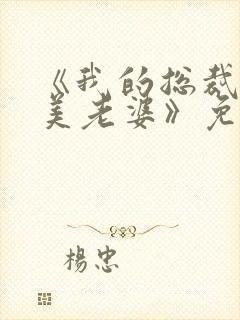 《我的总裁
美老婆》免
楊忠